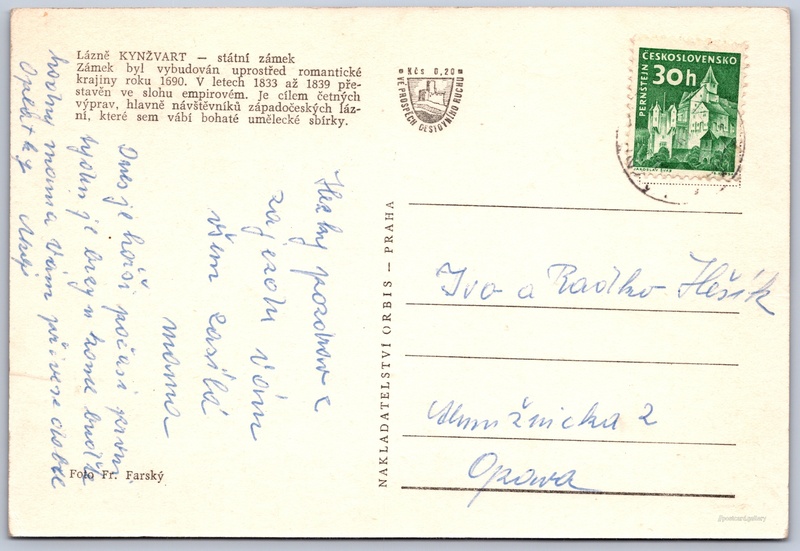 Lázně KYNŽVART — státní zámek
Zámek byl vybudován uprostřed romantické
krajiny roku 1690. V letech 1833 až 1839 pře-
stavěn ve slohu empirovém. Je cílem četných
výprav, hlavně návštěvníků západočeských láz-
ní, které sem vábí bohaté umělecké sbírky.
Kčs 0,20
VE PROSPĚCH CESTOVNÍHO RUCHU
ČESKOSLOVENSKO
30h
PERNŠTEJN
Hezký pozdrav z
zájezdu vám
všem zasílá
mama
Dnes je horší počasí první
týden je
mama Vám přiveze
Oplatky
NAKLADATELSTVÍ ORBIS — PRAHA
Ivo a Radko Hešík
2
Opava
Foto Fr. Farský